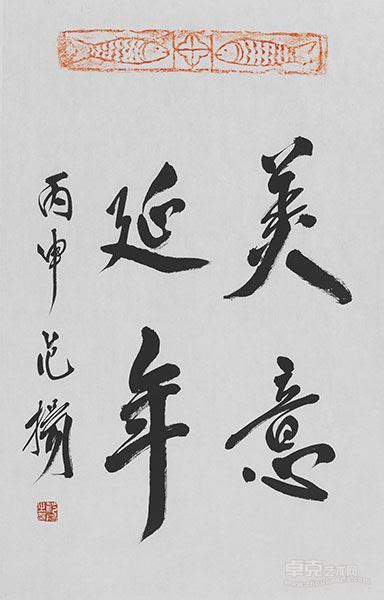 美意
延年
丙申范扬
卓克艺术网